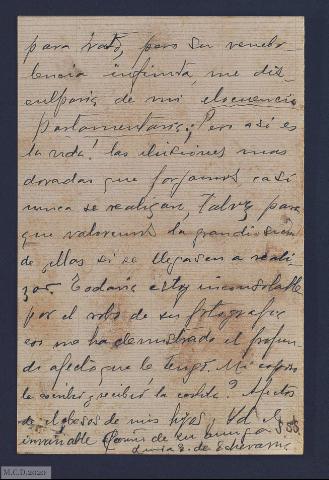 para rato, pero su benevo
lencia infinita, me dis
culparia de mi elocuencia
parlamentaria; Pero asi es
la vida! las ilusiones mas
doradas que forjamos casi
nunca se realizan, talvez para
que valoremos la grandiosidad
de ellas si se llegasen a reali
zar. Todavia estoy inconsolable
por el robo de su fotografia
eso me ha demostrado el profun
do afecto que le tengo. Mi esposo
le escribio recibió la carta? Afectos
de mis hijos. Ud. el
invariable de su amiga
de Echeverria
M.C.D.2020